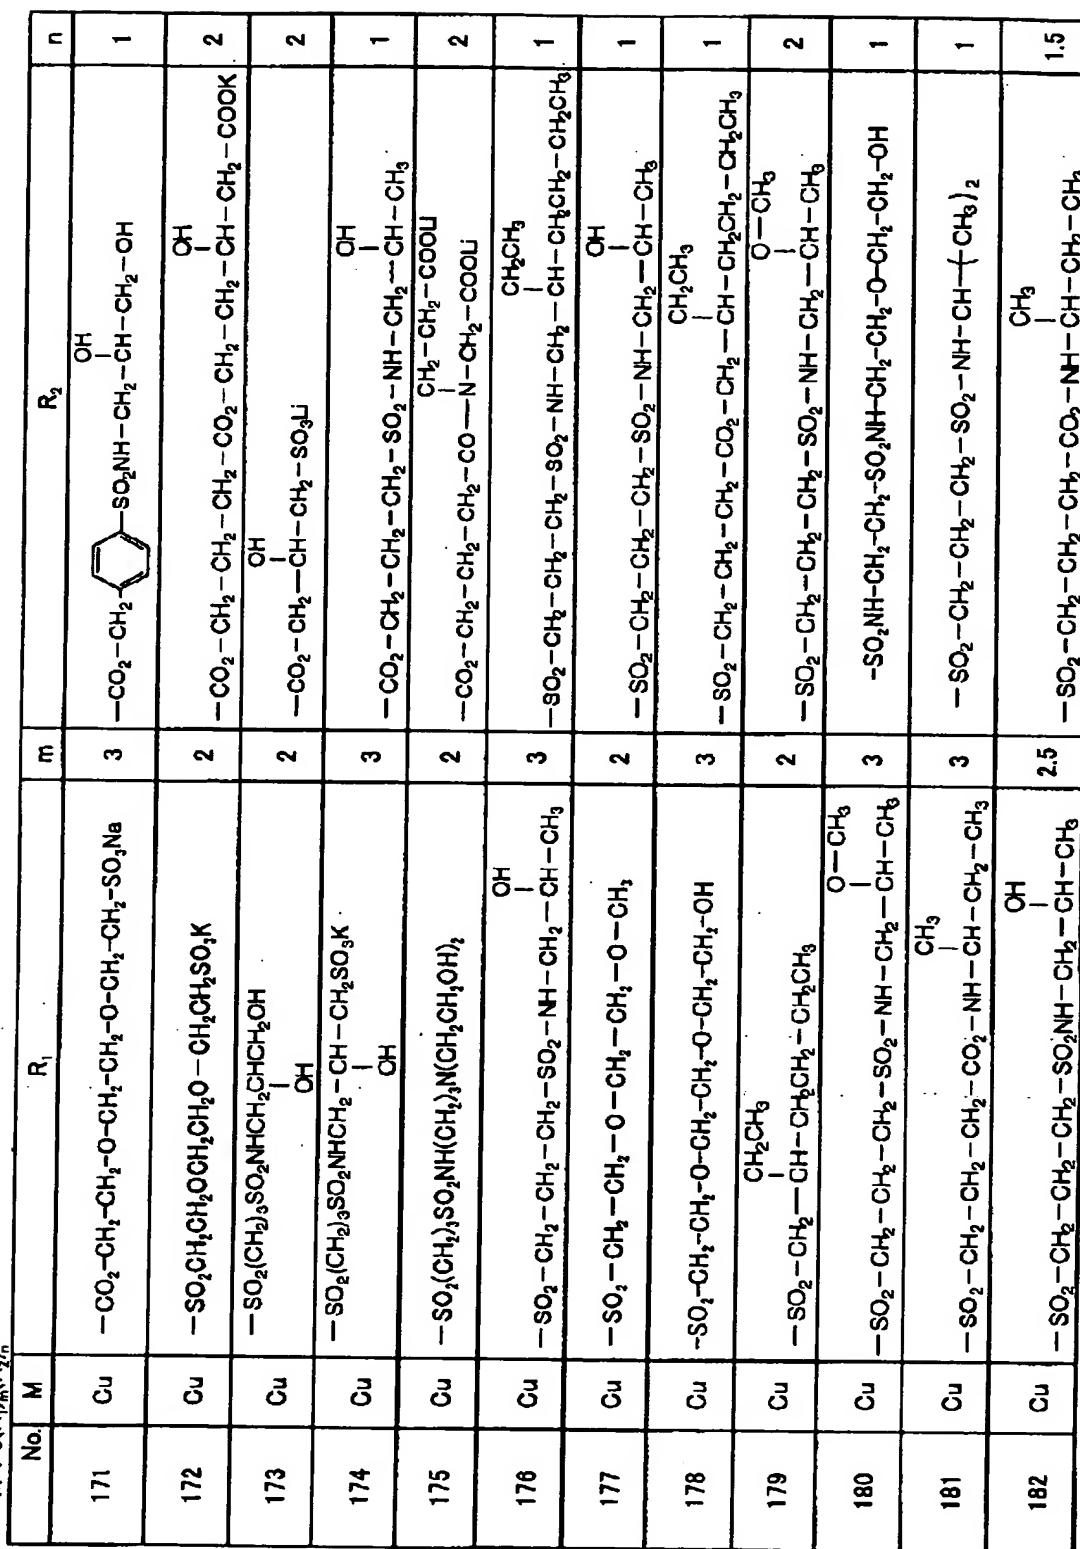 No. M R₁ m R₂ n
171 Cu —CO₂-CH₂-CH₂-O-CH₂-CH₂-O-CH₂-CH₂-SO₃Na 3 OH 1
—CO₂-CH₂ —SO₂NH-CH₂-CH-CH₂-OH
172 Cu —SO₂CH₂CH₂OCH₂CH₂O-CH₂CH₂SO₃K 2 OH 2
—CO₂-CH₂-CH₂-CH₂-CO₂-CH₂-CH₂-CH-CH₂-COOK
173 Cu —SO₂(CH₂)₃SO₂NHCH₂CHCH₂OH 2 OH 2
OH —CO₂-CH₂-CH-CH₂-SO₃Li
174 Cu —SO₂(CH₂)₃SO₂NHCH₂-CH-CH₂SO₃K 3 OH 1
OH —CO₂-CH₂-CH₂-CH₂-SO₂-NH-CH₂-CH-CH₃
175 Cu —SO₂(CH₂)₃SO₂NH(CH₂)₃N(CH₂CH₂OH)₂ 2 CH₂-CH₂-COOLi 2
—CO₂-CH₂-CH₂-CH₂-CO-N-CH₂-COOLi
176 Cu OH 3 CH₂CH₃ 1
—SO₂-CH₂-CH₂-CH₂-SO₂-NH-CH₂-CH-CH₃ —SO₂-CH₂-CH₂-CH₂-SO₂-NH-CH₂-CH-CH₂CH₂-CH₂CH₃
177 Cu —SO₂-CH₂-CH₂-O-CH₂-CH₂-O-CH₃ 2 OH 1
—SO₂-CH₂-CH₂-CH₂-SO₂-NH-CH₂-CH-CH₃
178 Cu -SO₂-CH₂-CH₂-O-CH₂-CH₂-O-CH₂-CH₂-OH 3 CH₂CH₃ 1
—SO₂-CH₂-CH₂-CH₂-CO₂-CH₂-CH-CH₂CH₂-CH₂CH₃
179 Cu CH₂CH₃ 2 O-CH₃ 2
—SO₂-CH₂-CH-CH₂CH₂-CH₂CH₃ —SO₂-CH₂-CH₂-CH₂-SO₂-NH-CH₂-CH-CH₃
180 Cu O-CH₃ 3 1
—SO₂-CH₂-CH₂-CH₂-SO₂-NH-CH₂-CH-CH₃ -SO₂NH-CH₂-CH₂-SO₂NH-CH₂-CH₂-O-CH₂-CH₂-OH
181 Cu CH₃ 3 1
—SO₂-CH₂-CH₂-CH₂-CO₂-NH-CH-CH₂-CH₃ —SO₂-CH₂-CH₂-CH₂-SO₂-NH-CH-(CH₃)₂
182 Cu OH 2.5 CH₃ 1.5
—SO₂-CH₂-CH₂-CH₂-SO₂NH-CH₂-CH-CH₃ —SO₂-CH₂-CH₂-CH₂-CO₂-NH-CH-CH₂-CH₃